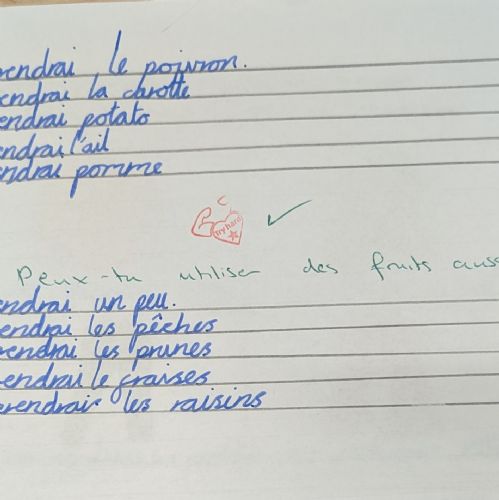 rendrai le poivron.
endrai la carotte
endrai potato
endrai l'ail
ndrai pomme
Try hard
Peux-tu utiliser des fruits auss
ndrai un peu.
endrai les pêches
rendrai les prunes
endrai le fraises
rendrai les raisins